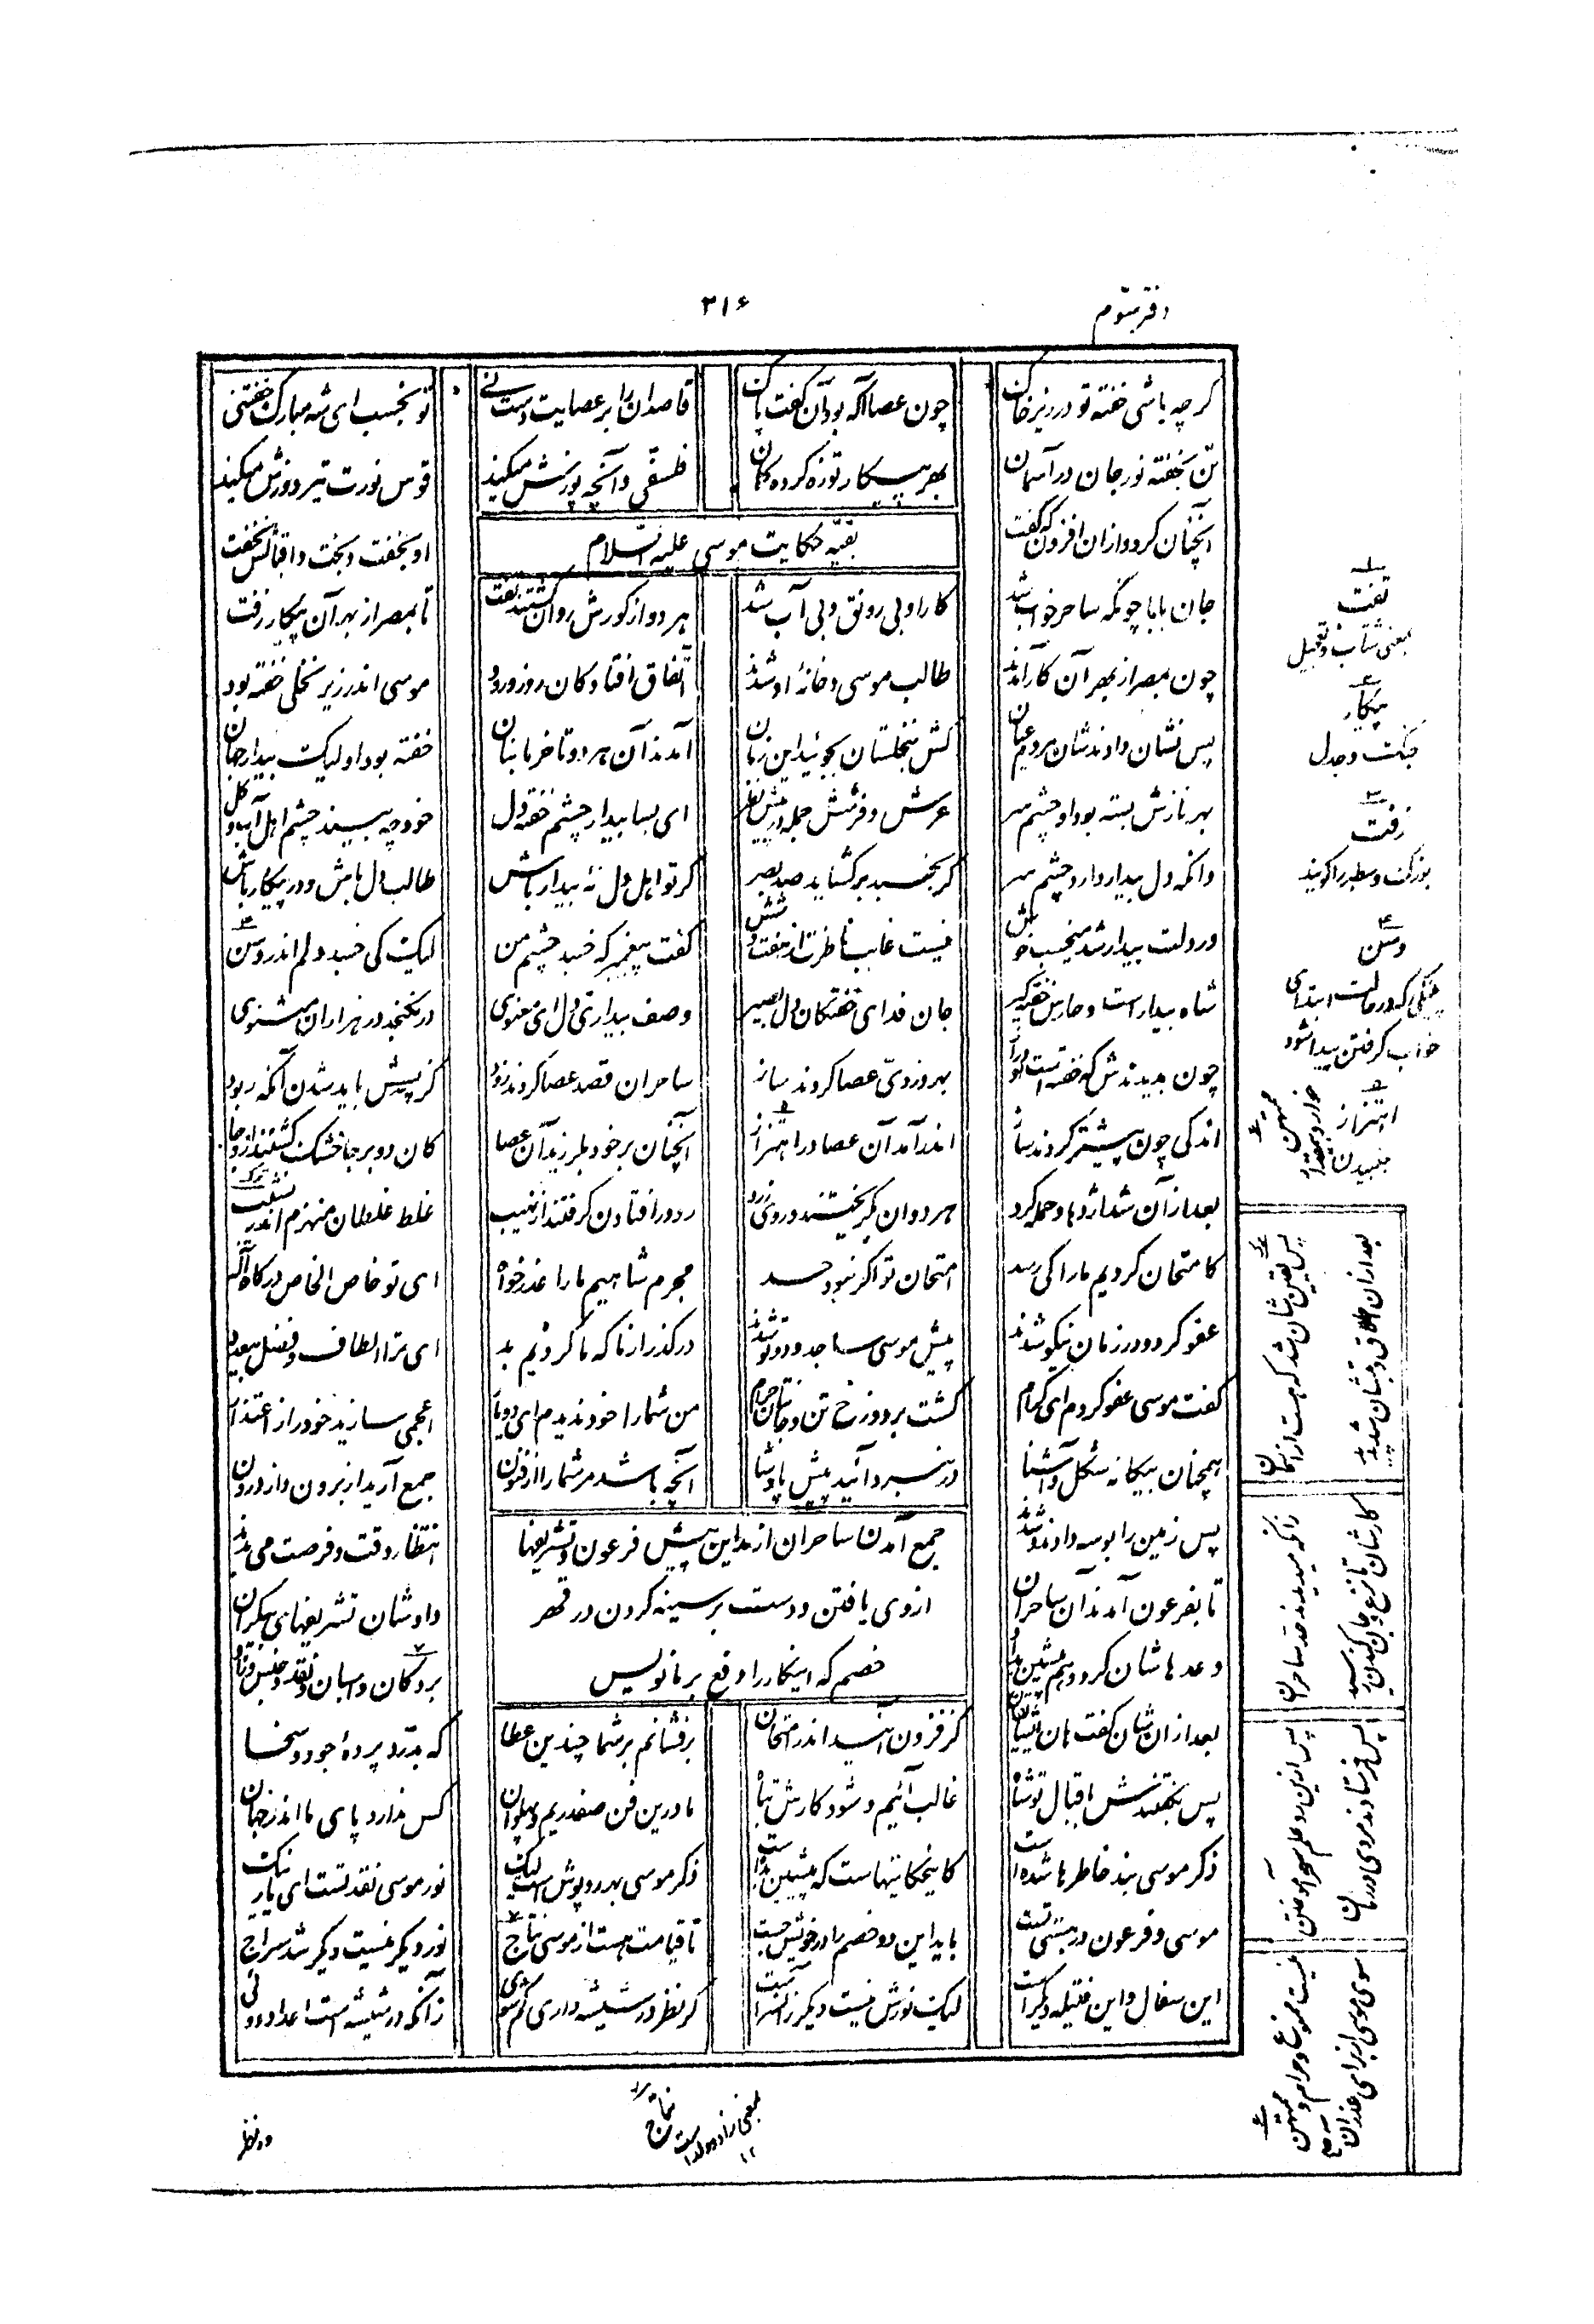 دفتر سوم
۳۱۶
گرچه باشی خفته تو در زیر خاک چون عصا آگه بود آن گفت پاک قاصدان را بر عصایت دست نی تو بخسب ای شه مبارک خفتنی
تن بخفته نور جان در آسمان بهر پیکار تو زه کرده کمان فلسفی و آنچه پوزش میکند قوس نورت تیر دوزش میکند
آنچنان کرد و از آن افزون که گفت او بخفت و بخت و اقبالش نخفت
بقیه حکایت موسی علیه السلام
جان بابا چونکه ساحر خواب شد کار او بی رونق و بی آب شد هر دو از گورش روان گشتند تفت تا بمصر از بهر آن پیکار زفت
چون بمصر از بهر آن کار آمدند طالب موسی و خانه او شدند اتفاق افتاد کان روز ورود موسی اندر زیر نخلی خفته بود
پس نشان دادندشان مردم عیان کش بنخلستان بجوئید این زمان آمدند آن هر دو تا خرما بنان خفته بود او لیک بیدار جهان
بهر نازش بسته بود او چشم سر عرش و فرشش جمله در پیش نظر ای بسا بیدار چشم خفته دل خود چه بیند چشم اهل آب و گل
وانکه دل بیدار دارد چشم سر گر بخسبد بر گشاید صد بصر گر تو اهل دل نه بیدار باش طالب دل باش و در پیکار باش
ور دلت بیدار شد میخسب خوش نیست غایب ناظرت از هفت و شش گفت پیغمبر که خسبد چشم من لیک کی خسبد دلم اندر وسن
شاه بیدار است و حارس خفته گیر جان فدای خفتگان دل بصیر وصف بیداری دل ای معنوی در نگنجد در هزاران مثنوی
چون بدیدندش که خفته است او دراز بهر دزدی عصا کردند ساز ساحران قصد عصا کردند زود کز پسش باید شدن آنگه ربود
اندکی چون پیشتر کردند ساز اندر آمد آن عصا در اهتزاز آنچنان بر خود بلرزید آن عصا کان دو بر جا خشک گشتند از وجا
بعد از آن شد اژدها و حمله کرد هر دوان بگریختند و روی زرد رو در افتادن گرفتند از نهیب غلط غلطان منهزم اندر نشیب
کامتحان کردیم ما را کی رسد امتحان تو اگر نبود حسد مجرم شاهیم ما را عذر خواه ای تو خاص الخاص درگاه اله
عفو کرد و در زمان نیکو شدند پیش موسی ساجد و دوتو شدند درگذر از ما که ما کردیم بد ای ترا الطاف و فضل بیعدد
گفت موسی عفو کردم ای کرام گشت بر دوزخ تن و جانتان حرام من شما را خود ندیدم ای دو یار اعجمی سازید خود را ز اعتذار
همچنان بیگانه شکل و آشنا در نبرد آئید پیش پادشا آنچه باشد مر شما را از فنون جمع آرید از برون و از درون
پس زمین را بوسه دادند و شدند انتظار وقت و فرصت می بدند
جمع آمدن ساحران از مداین پیش فرعون و تشریفها
ازوی یافتن و دست بر سینه کردن در قهر
خصم که اینکار را وقع بر ما نویس
تا بفرعون آمدند آن ساحران دادشان تشریفهای بیکران
وعدهاشان کرد و هم پیشین بداد بردگان و اسبان و نقد و جنس و زاد
بعد از آن شان گفت هان ای سابقان گر فزون آئید اندر امتحان بر فشانم بر شما چندین عطا که بدرد پرده جود و سخا
پس بگفتندش باقبال تو شاه غالب آئیم و شود کارش تباه ما درین فن صفدریم و پهلوان کس ندارد پای ما اندر جهان
ذکر موسی بند خاطرها شده است کاین حکایتهاست که پیشین بده است ذکر موسی بهر روپوش است لیک نور موسی نقد تست ای یار نیک
موسی و فرعون در هستی تست باید این دو خصم را در خویش جست تا قیامت هست از موسی نتاج نور دیگر نیست دیگر شد سراج
این سفال و این فتیله دیگر است لیک نورش نیست دیگر زان سراست گر نظر در شیشه داری گم شوی زانکه در شیشه است اعداد دوی
۱ تفت
بمعنی شتاب و تعجیل
۲ پیکار
جنگ و جدل
۳ زفت
بزرگ و سطبر را گویند
۴ وسن
خواب گرفتن پیدا شود
۵ اهتزاز
جنبیدن
بعد از آن اطلاق و تبشان شد پدید کارشان تا نزع و جان کندن رسید
پس فرستادند مردی در زمان سوی موسی از برای عذر آن
پس یقین شان شد که هست از آسمان زانکه میدیدند حد ساحران
پس ازین رو علم سحر آموختن نیست ممنوع و حرام و ممتهن
نتاج
بمعنی زاده و ولد است ۱۲
در نظر